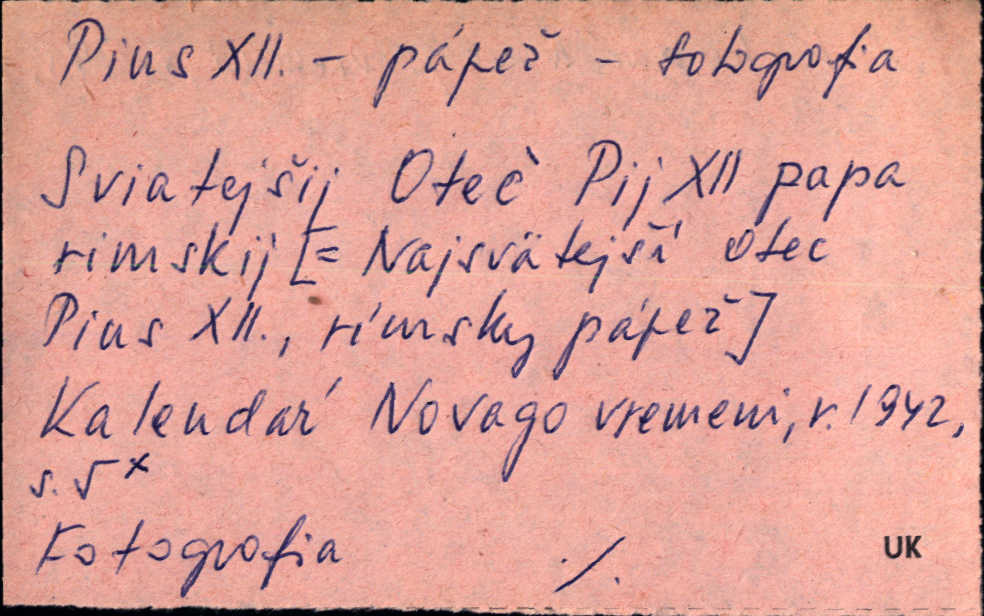 Pius XII. - pápež - fotografia
Sviatejšij Oteč Pij XII papa
rimskij [= Najsvätejší otec
Pius XII., rímsky pápež]
Kalendár Novago vremeni, r. 1942,
s. 5 x
Fotografia ./.
UK